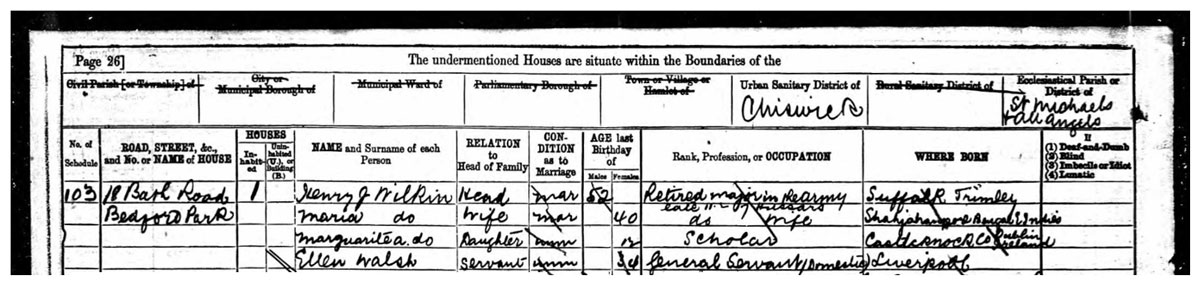 Page 26]
The undermentioned Houses are situate within the Boundaries of the
Civil Parish [or Township] of
City or Municipal Borough of
Municipal Ward of
Parliamentary Borough of
Town or Village or Hamlet of
Urban Sanitary District of
Chiswick
Rural Sanitary District of
Ecclesiastical Parish or District of
St Michaels
+ all angels
No. of Schedule
ROAD, STREET, &c., and No. or NAME of HOUSE
HOUSES
Inhabited
Uninhabited (U.), or Building (B.)
NAME and Surname of each Person
RELATION to Head of Family
CONDITION as to Marriage
AGE last Birthday of
Males
Females
Rank, Profession, or OCCUPATION
WHERE BORN
If
(1) Deaf-and-Dumb
(2) Blind
(3) Imbecile or Idiot
(4) Lunatic
103 18 Bath Road 1 Henry J Wilkin Head mar 52 Retired major in the army Suffolk Trimley
late Hussars
Bedford Park maria do wife mar 40 do wife Shahjahanpore Bengal E Indies
marguerite a. do Daughter unm 12 Scholar Castleknock Co Dublin Ireland
Ellen Walsh Servant unm 34 General Servant (Domestic) Liverpool